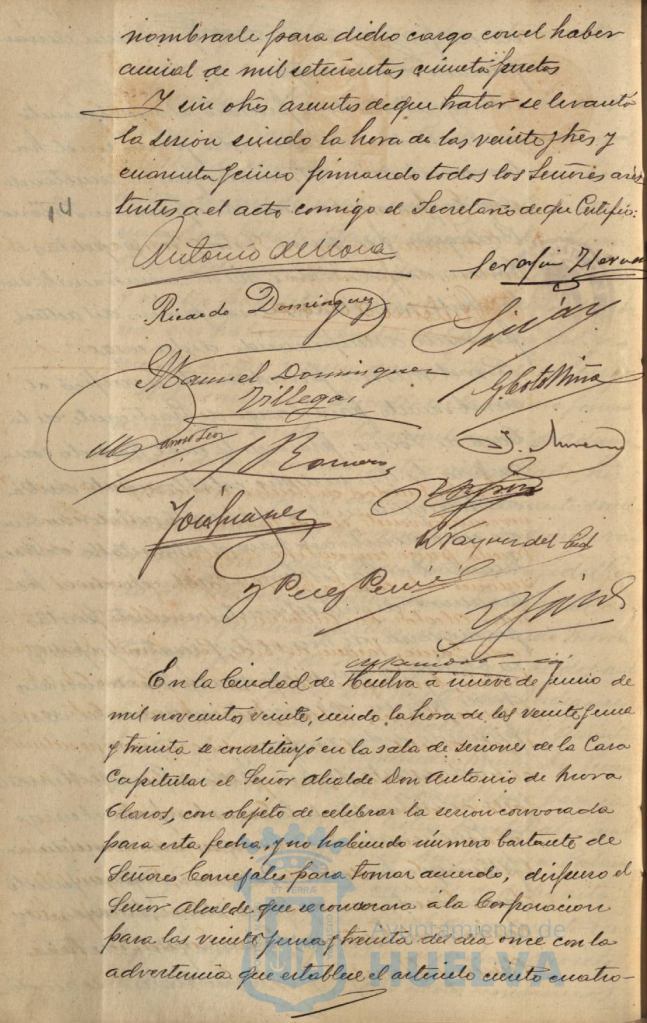 nombrarle para dicho cargo con el haber
anual de mil setecientas cincuenta pesetas
Y sin otros asuntos de que tratar se levantó
la sesion siendo la hora de las veinte y tres y
cuarenta y cinco firmando todos los Señores asis
tentes a el acto comigo el Secretario de que Certifico:
14
Antonio de Mora
Serafin
Ricardo Dominguez
Manuel Dominguez
Villegas
G. Coto Mora
Romero
J. Moreno
José Suarez
Vazquez del Cid
J Perez
En la Ciudad de Huelva á nueve de Junio de
mil novecientos veinte, siendo la hora de las veinte y una
y treinta se constituyó en la sala de sesiones de la Casa
Capitular el Señor Alcalde Don Antonio de Mora
Claros, con objeto de celebrar la sesion convocada
para esta fecha, y no habiendo número bastante de
Señores Concejales para tomar acuerdo, dispuso el
Señor Alcalde que se convocara á la Corporacion
para las veinte y una y treinta del dia once con la
advertencia que establece el articulo ciento cuatro—
Ayuntamiento de
HUELVA